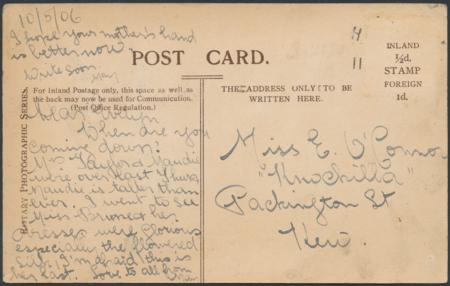 10/5/06
I hope your mother's hand
is better now
Write soon
May
POST CARD.
4
11
INLAND
½d.
STAMP
FOREIGN
1d.
For Inland Postage only, this space as well as
the back may now be used for Communication.
(Post Office Regulation.)
THE ADDRESS ONLY TO BE
WRITTEN HERE.
ROTARY PHOTOGRAPHIC SERIES.
Dear Evelyn
When are you
coming down?
Mrs Taylor & Maudie
were over last Thurs
Maudie is taller than
ever. I went to see
Miss & her
dresses were glorious
especially the flowered
silk. I'm afraid this is
her last. Love to all from
Miss E. O'Connor
"Knochilla"
Packington St
Kew.